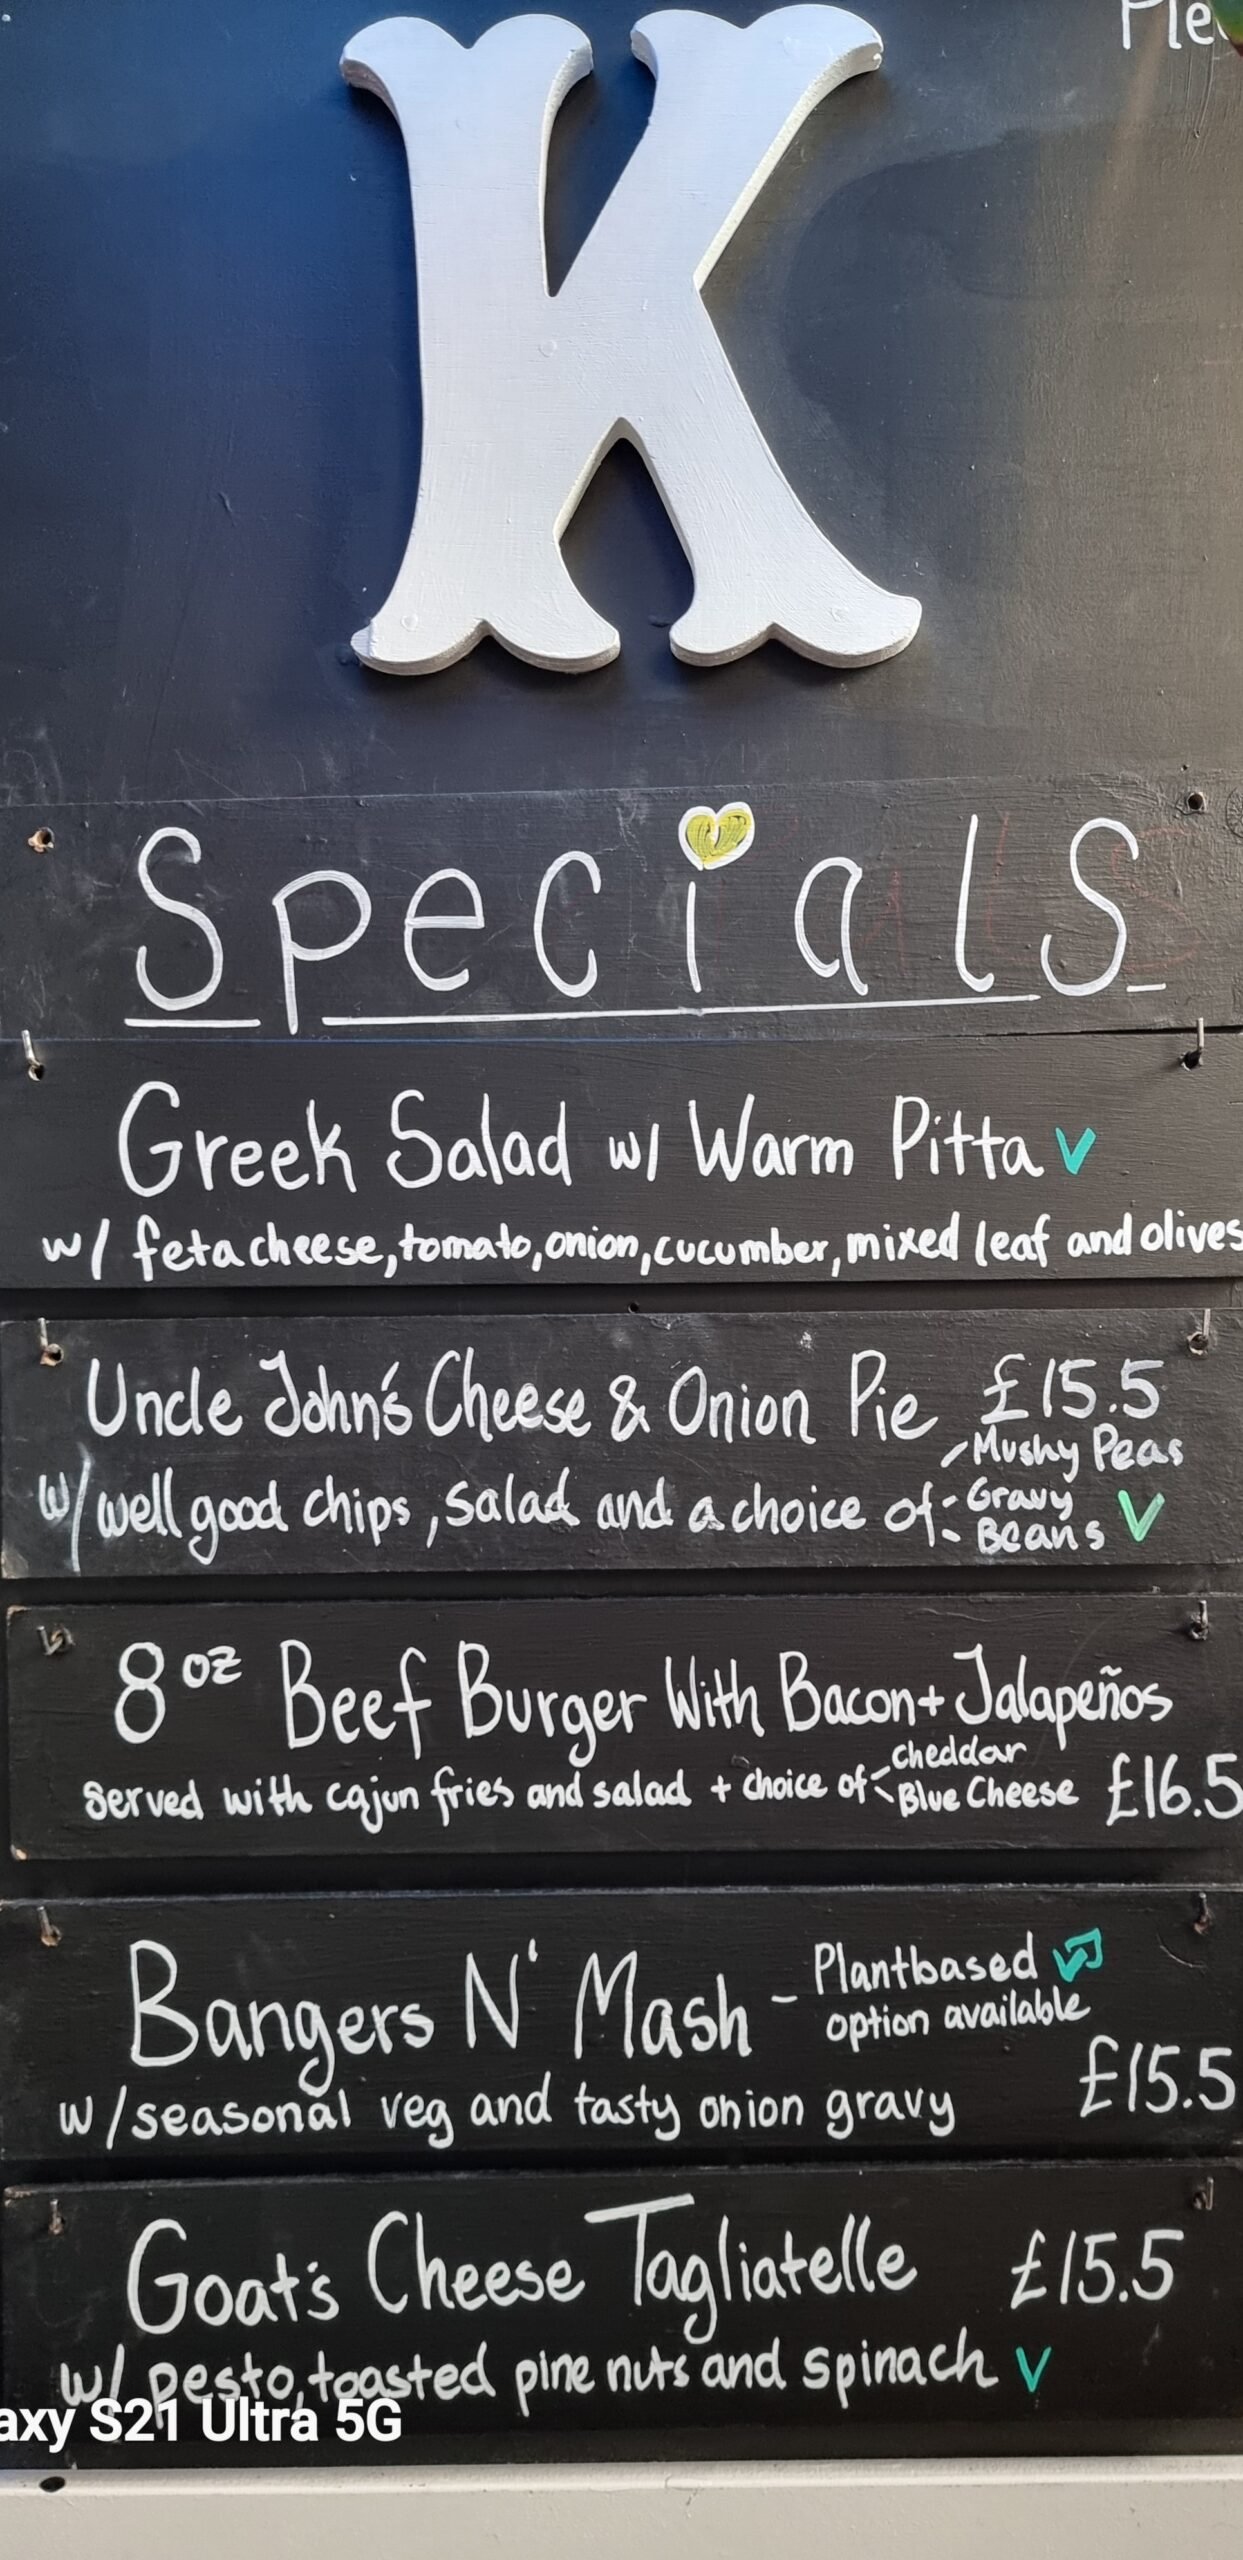 Ple
K
Specials
Greek Salad w/ Warm Pitta V
w/ feta cheese, tomato, onion, cucumber, mixed leaf and olives
Uncle John's Cheese & Onion Pie £15.5
w/ well good chips, salad and a choice of - Mushy Peas
- Gravy
- Beans V
8oz Beef Burger With Bacon + Jalapeños
served with cajun fries and salad + choice of - cheddar
- Blue Cheese £16.5
Bangers N' Mash - Plantbased
option available
£15.5
w/ seasonal veg and tasty onion gravy
Goat's Cheese Tagliatelle £15.5
w/ pesto, toasted pine nuts and spinach V
axy S21 Ultra 5G